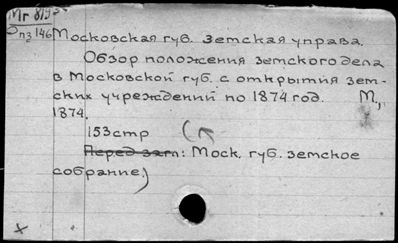 Mr 819
Опз 146 Московская губ. земская управа.
Обзор положения земского дела
в Московской губ. с открытия зем-
ских учреждений по 1874 год. М.,
1874.
153 стр
(Перед загл: Моск. губ. земское
собрание.)